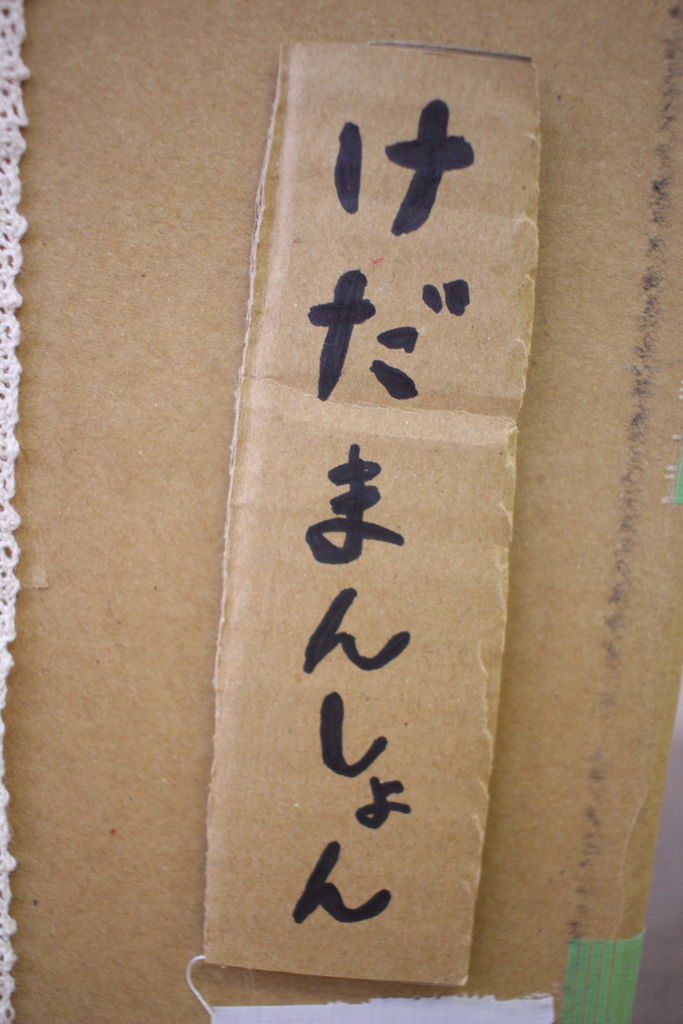 けだまんしょん